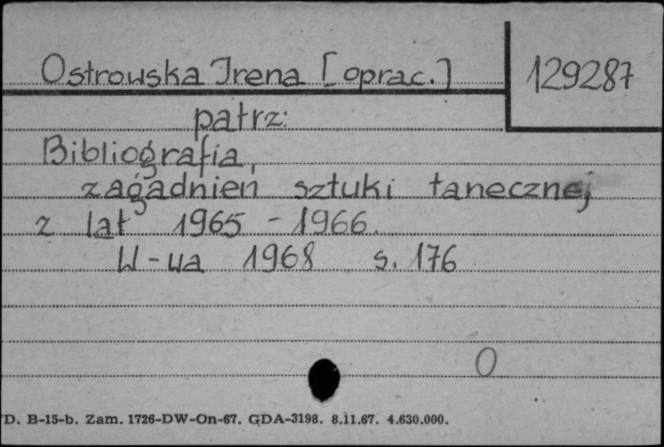 Ostrowska Irena [oprac.]
129287
patrz:
Bibliografia
zagadnień sztuki tanecznej
z lat 1965 - 1966.
W-wa 1968 s. 176
0
D. B-15-b. Zam. 1726-DW-On-67. GDA-3198. 8.11.67. 4.630.000.